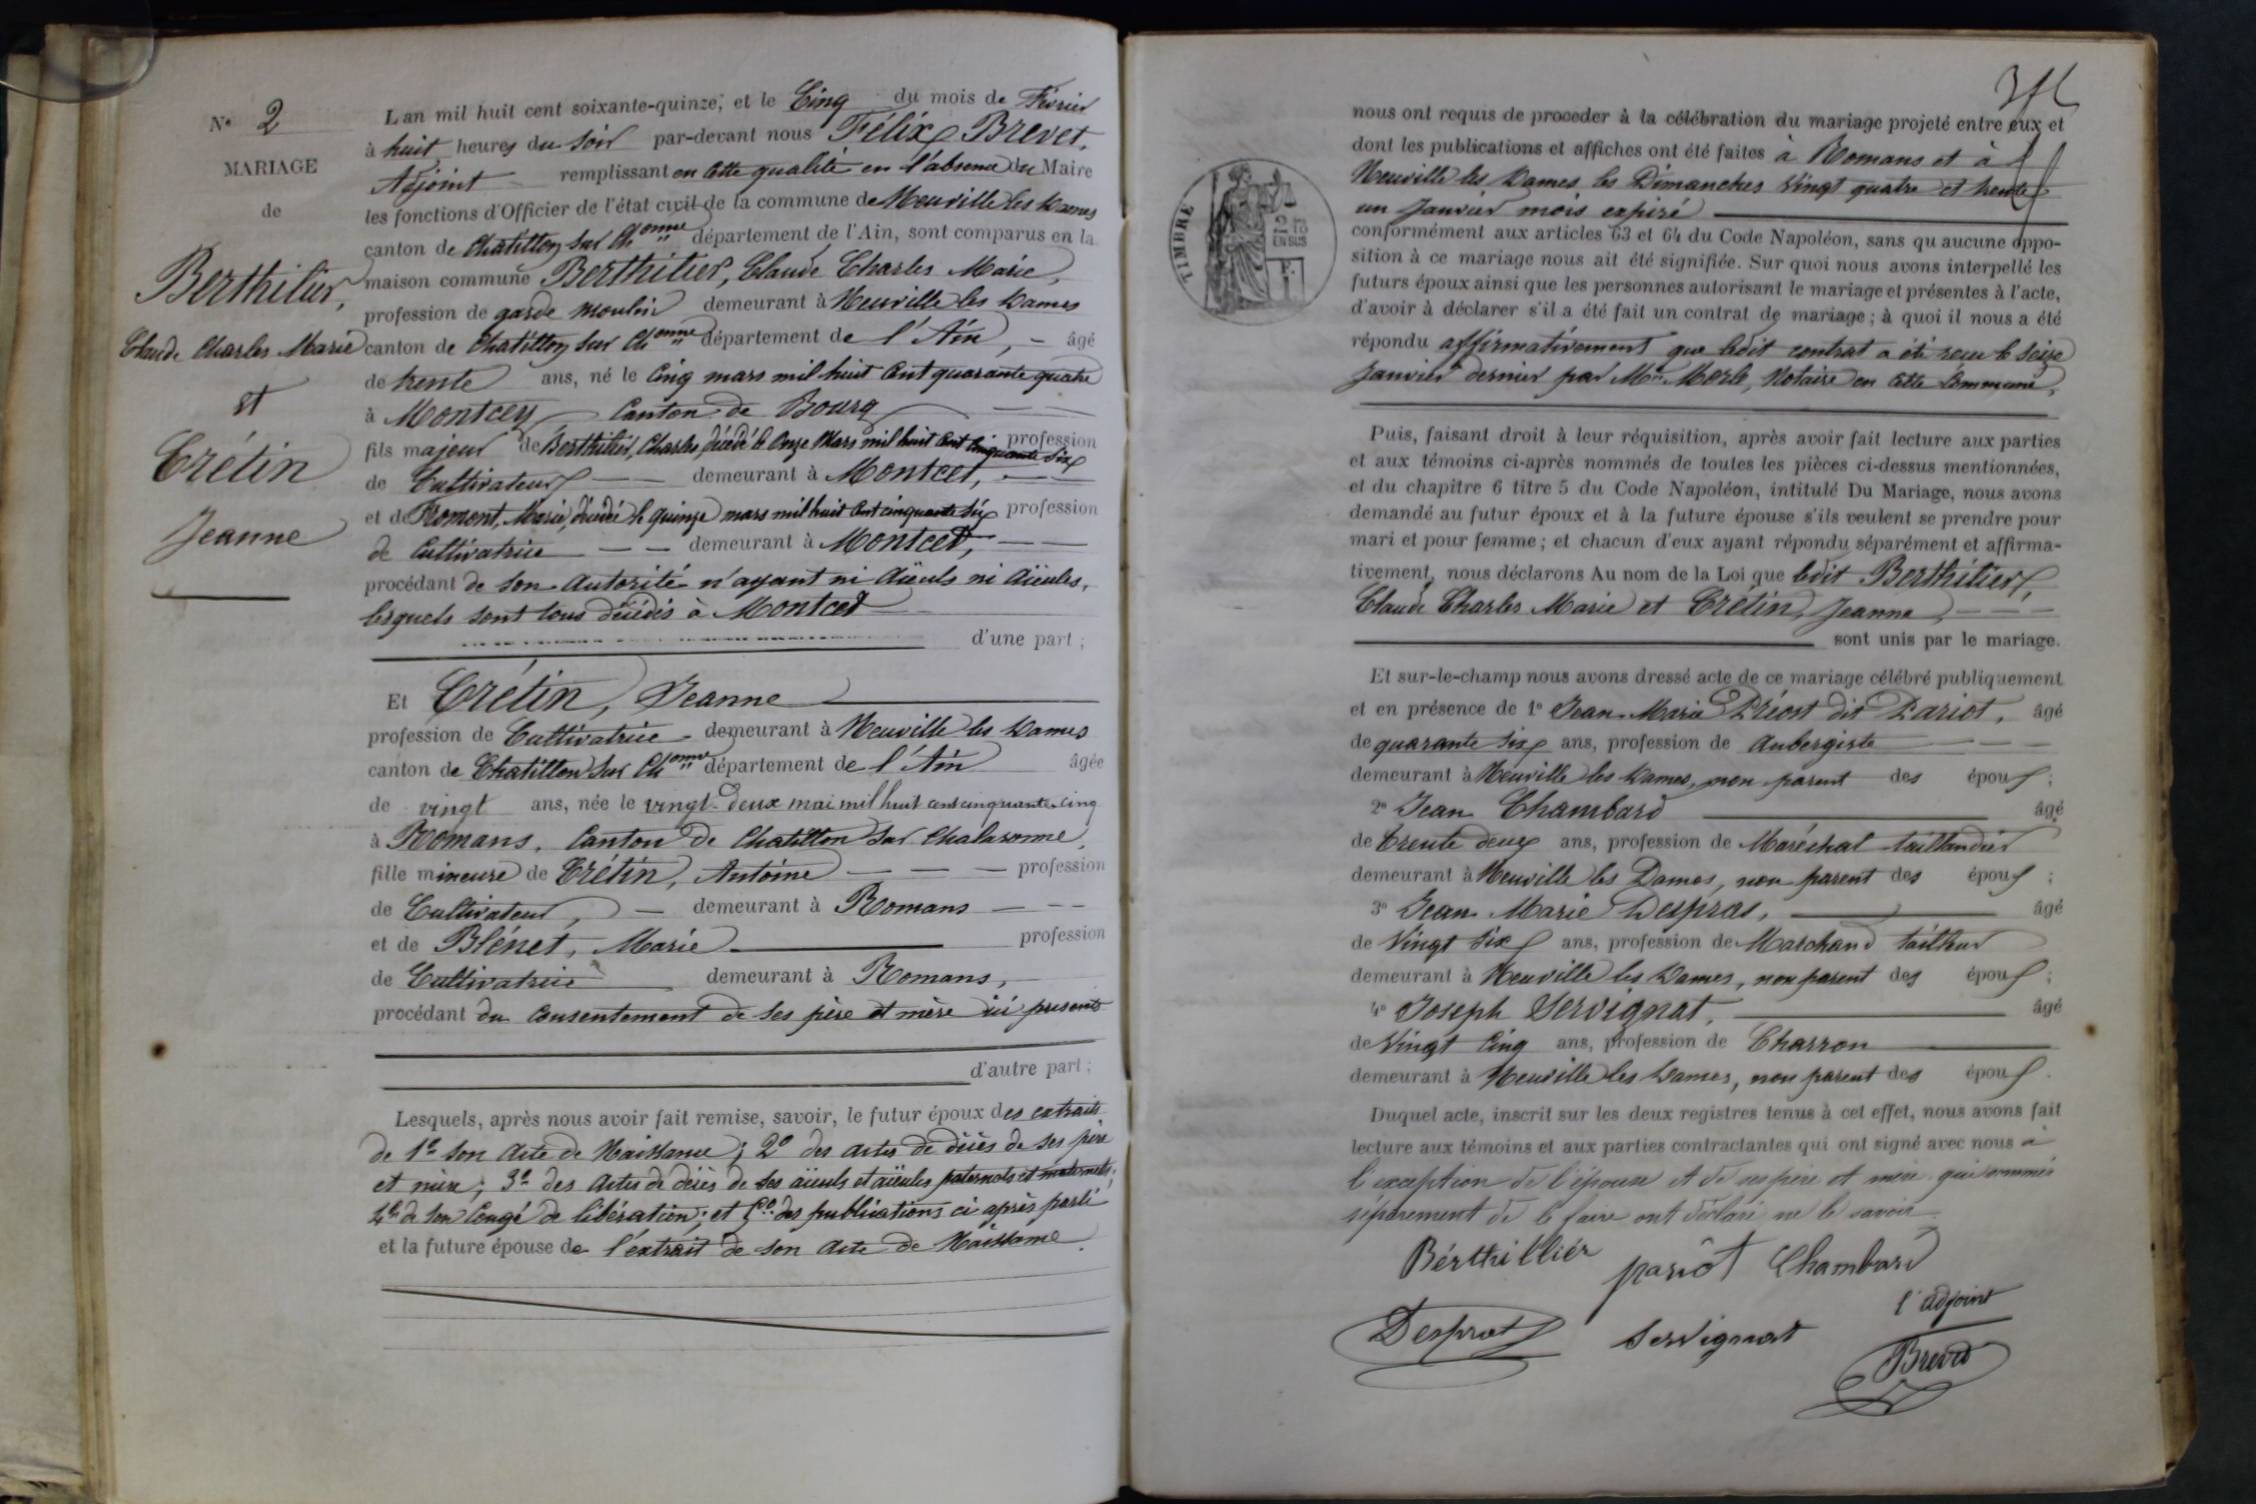 N° 2
MARIAGE
de
Berthilier,
Claude Charles Marie
et
Crétin
Jeanne
L'an mil huit cent soixante-quinze, et le Cinq du mois de Février
à huit heures du soir par-devant nous Félix Brevet,
Adjoint remplissant en cette qualité en l'absence du Maire
les fonctions d'Officier de l'état civil de la commune de Neuville les Dames
canton de Chatillon sur Ch onne département de l'Ain, sont comparus en la
maison commune Berthilier, Claude Charles Marie,
profession de garde moulin demeurant à Neuville les Dames
canton de Chatillon sur Ch onne département de l'Ain, âgé
de trente ans, né le Cinq mars mil huit cent quarante quatre
à Montcey Canton de Bourg
fils majeur de Berthilier, Charles, décédé le Onze Mars mil huit cent cinquante six profession
de Cultivateur demeurant à Montcet,
et de Promont, Marie, décédée le quinze mars mil huit cent cinquante six profession
de Cultivatrice demeurant à Montcet,
procédant de son autorité n'ayant ni Aïeuls ni Aïeules,
lesquels sont tous décédés à Montcet
d'une part ;
Et Crétin, Jeanne
profession de Cultivatrice demeurant à Neuville les Dames
canton de Chatillon sur Ch onne département de l'Ain âgée
de vingt ans, née le vingt-deux mai mil huit cent cinquante-cinq
à Romans, Canton de Chatillon sur Chalaronne,
fille mineure de Crétin, Antoine profession
de Cultivateur, demeurant à Romans
et de Blénet, Marie profession
de Cultivatrice demeurant à Romans,
procédant du consentement de ses père et mère ici présents
d'autre part ;
Lesquels, après nous avoir fait remise, savoir, le futur époux des extraits
de 1° son acte de Naissance ; 2° des actes de décès de ses père
et mère ; 3° des Actes de décès de ses aïeuls et aïeules paternels et maternels ;
4° de son Congé de libération ; et 5° des publications ci après parlé
et la future épouse de l'extrait de son acte de Naissance.
TIMBRE
nous ont requis de proceder à la célébration du mariage projeté entre eux et
dont les publications et affiches ont été faites à Romans et à
Neuville les Dames les Dimanches Vingt quatre et trente
un Janvier mois expiré
conformément aux articles 63 et 64 du Code Napoléon, sans qu aucune oppo-
sition à ce mariage nous ait été signifiée. Sur quoi nous avons interpellé les
futurs époux ainsi que les personnes autorisant le mariage et présentes à l'acte,
d'avoir à déclarer s'il a été fait un contrat de mariage ; à quoi il nous a été
répondu affirmativement que ledit contrat a été reçu le seize
Janvier dernier par Me Merle, Notaire en cette Commune.
Puis, faisant droit à leur réquisition, après avoir fait lecture aux parties
et aux témoins ci-après nommés de toutes les pièces ci-dessus mentionnées,
et du chapitre 6 titre 5 du Code Napoléon, intitulé Du Mariage, nous avons
demandé au futur époux et à la future épouse s'ils veulent se prendre pour
mari et pour femme ; et chacun d'eux ayant répondu séparément et affirma-
tivement, nous déclarons Au nom de la Loi que ledit Berthilier,
Claude Charles Marie et Crétin, Jeanne,
sont unis par le mariage.
Et sur-le-champ nous avons dressé acte de ce mariage célébré publiquement
et en présence de 1° Jean-Marie Préost dit Pariot, âgé
de quarante six ans, profession de Aubergiste
demeurant à Neuville les Dames, non parent des époux ;
2° Jean Chambard âgé
de trente deux ans, profession de Maréchal taillandier
demeurant à Neuville les Dames, non parent des époux ;
3° Jean Marie Despras, âgé
de Vingt six ans, profession de Marchand tailleur
demeurant à Neuville les Dames, non parent des époux ;
4° Joseph Servignat, âgé
de Vingt Cinq ans, profession de Charron
demeurant à Neuville les Dames, non parent des époux.
Duquel acte, inscrit sur les deux registres tenus à cet effet, nous avons fait
lecture aux témoins et aux parties contractantes qui ont signé avec nous à
l'exception de l'épouse et de ses père et mère qui sommés
séparément de le faire ont déclaré ne le savoir.
Bérthilliér pariôt Chambard
l'adjoint
Desprat Servignat
Brevet